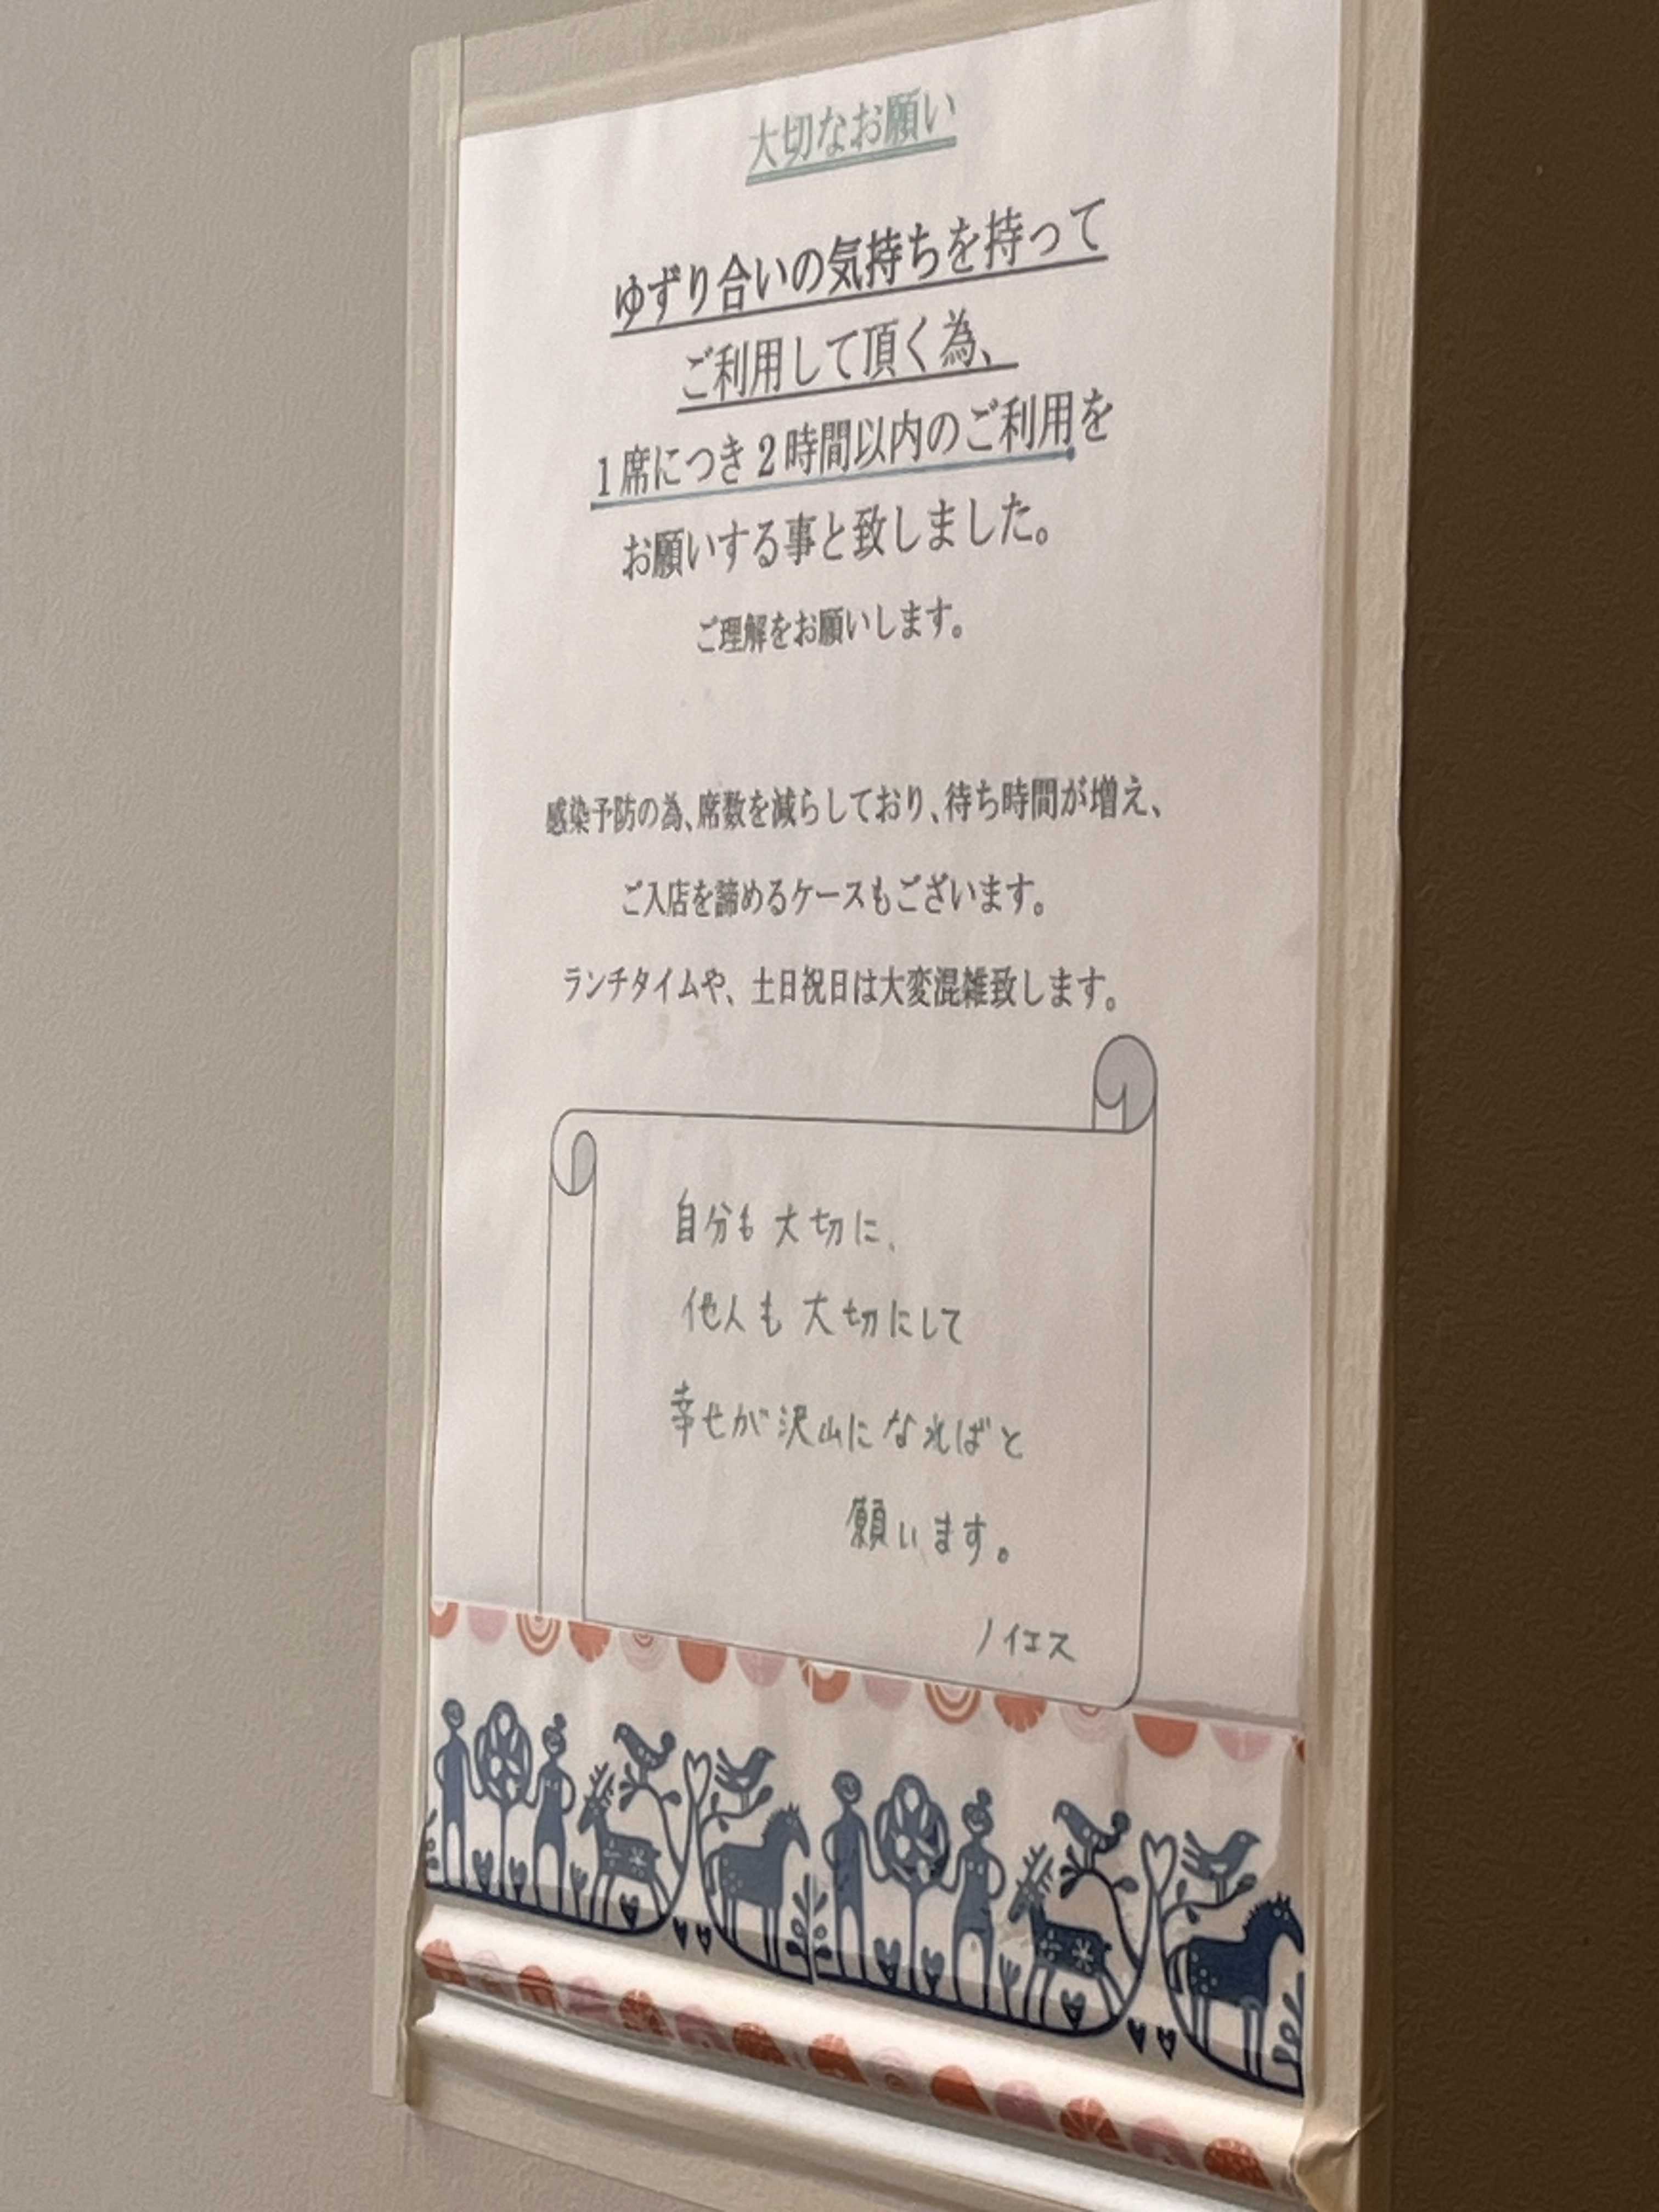 大切なお願い
ゆずり合いの気持ちを持って
ご利用して頂く為、
1席につき2時間以内のご利用を
お願いする事と致しました。
ご理解をお願いします。
感染予防の為、席数を減らしており、待ち時間が増え、
ご入店を諦めるケースもございます。
ランチタイムや、土日祝日は大変混雑致します。
自分も大切に、
他人も大切にして
幸せが沢山になればと
願います。
ノイエス